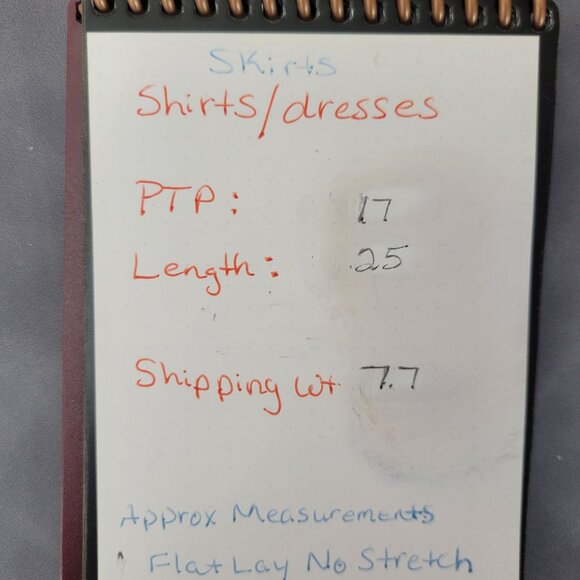 Skirts
Shirts/dresses
PTP: 17
Length: 25
Shipping Wt 7.7
Approx Measurements
Flat Lay No Stretch